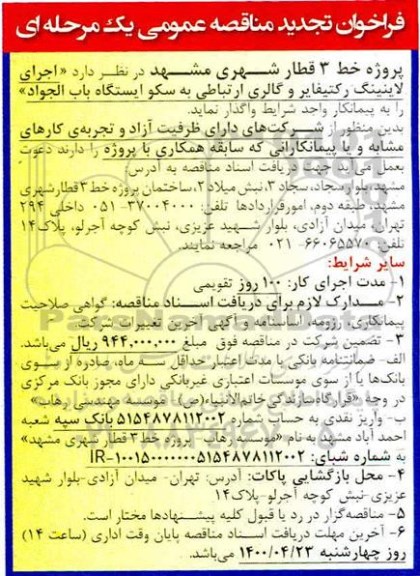 فراخوان تجدید مناقصه عمومی یک مرحله ای
پروژه خط ۳ قطار شهری مشهد در نظر دارد «اجرای
لاینینگ رکتیفایر و گالری ارتباطی به سکو ایستگاه باب الجواد»
را به پیمانکار واجد شرایط واگذار نماید.
بدین منظور از شرکت‌های دارای ظرفیت آزاد و تجربه‌ی کارهای
مشابه و یا پیمانکارانی که سابقه همکاری با پروژه را دارند دعوت
بعمل می آید جهت دریافت اسناد مناقصه به آدرس:
مشهد، بلوار سجاد، سجاد ۳، نبش میلاد ۲، ساختمان پروژه خط ۳ قطار شهری
مشهد، طبقه دوم، امور قراردادها تلفن: ۳۷۰۰۴۰۰۰-۰۵۱ داخلی ۲۹۴
تهران، میدان آزادی، بلوار شهید عزیزی، نبش کوچه آجرلو، پلاک ۱۴
تلفن: ۶۶۰۶۵۵۷۰-۰۲۱ مراجعه نمایند.
سایر شرایط:
۱- مدت اجرای کار: ۱۰۰ روز تقویمی
۲- مدارک لازم برای دریافت اسناد مناقصه: گواهی صلاحیت
پیمانکاری، رزومه، اساسنامه و آگهی آخرین تغییرات شرکت.
۳- تضمین شرکت در مناقصه فوق مبلغ ۹۴۴,۰۰۰,۰۰۰ ریال می‌باشد.
الف- ضمانتنامه بانکی با مدت اعتبار حداقل سه ماه، صادره از سوی
بانک‌ها یا از سوی موسسات اعتباری غیربانکی دارای مجوز بانک مرکزی
در وجه «قرارگاه سازندگی خاتم الانبیاء(ص)- موسسه مهندسی رهاب»
ب- واریز نقدی به حساب شماره ۵۱۵۴۸۷۸۱۱۲۰۰۲ بانک سپه شعبه
احمد آباد مشهد به نام «موسسه رهاب - پروژه خط ۳ قطار شهری مشهد»
به شماره شبای: IR-۱۰۰۱۵۰۰۰۰۰۰۵۱۵۴۸۷۸۱۱۲۰۰۲
۴- محل بازگشایی پاکات: آدرس: تهران- میدان آزادی-بلوار شهید
عزیزی-نبش کوچه آجرلو-پلاک ۱۴
۵- مناقصه‌گزار در رد یا قبول کلیه پیشنهادها مختار است.
۶- آخرین مهلت دریافت اسناد مناقصه پایان وقت اداری (ساعت ۱۴)
روز چهارشنبه ۱۴۰۰/۰۴/۲۳ می‌باشد.